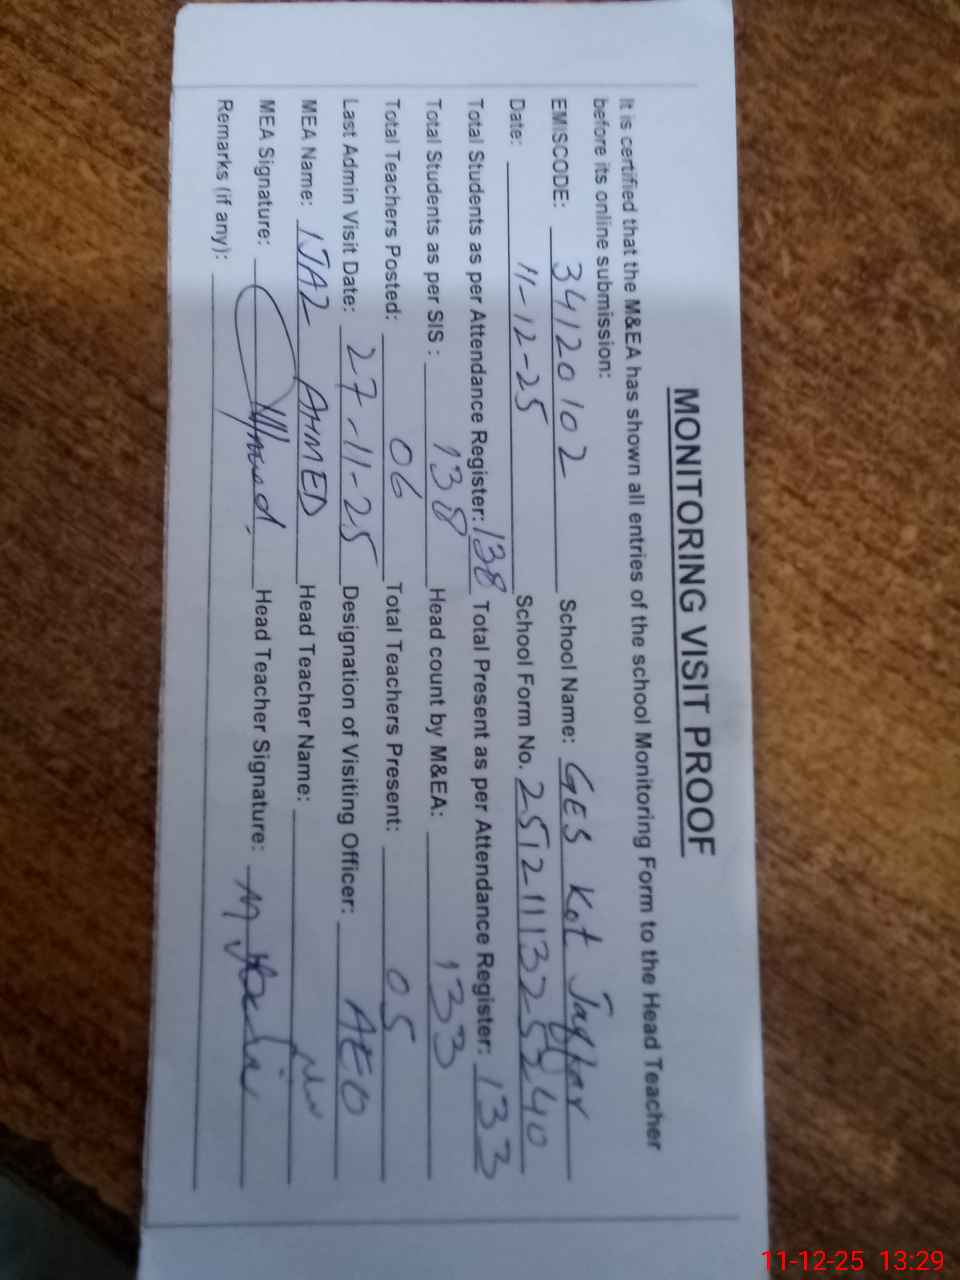 MONITORING VISIT PROOF
It is certified that the M&EA has shown all entries of the school Monitoring Form to the Head Teacher
before its online submission:
EMISCODE: 34120102 School Name: GES Kot Jaffar
Date: 11-12-25 School Form No. 2512111325240
Total Students as per Attendance Register: 138 Total Present as per Attendance Register: 133
Total Students as per SIS : 138 Head count by M&EA: 133
Total Teachers Posted: 06 Total Teachers Present: 05
Last Admin Visit Date: 27-11-25 Designation of Visiting Officer: AEO
MEA Name: IJAZ AHMED Head Teacher Name:
MEA Signature: Head Teacher Signature:
Remarks (if any):
11-12-25 13:29